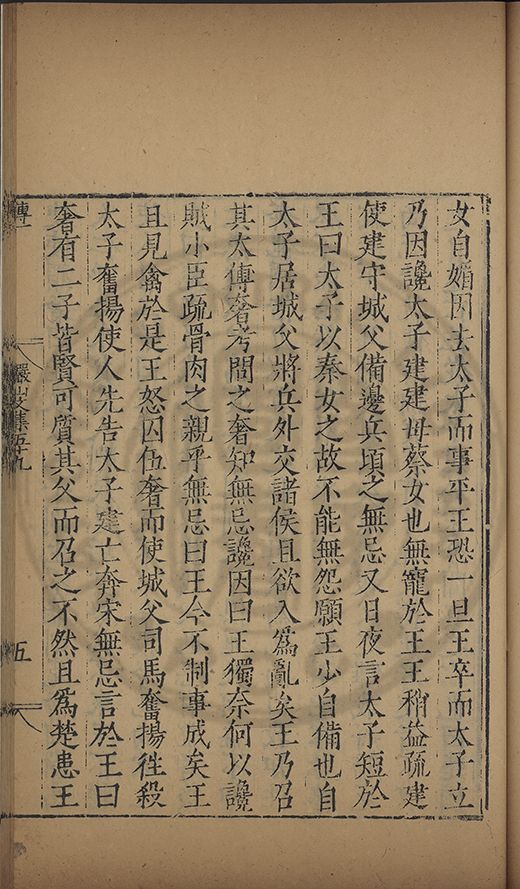 女自媚因去太子而事平王恐一旦王卒而太子立
乃因讒太子建建母蔡女也無寵於王王稍益疏建
使建守城父備邊兵頃之無忌又日夜言太子短於
王曰太子以秦女之故不能無怨願王少自備也自
太子居城父將兵外交諸侯且欲入為亂矣王乃召
其太傅奢考問之奢知無忌讒因曰王獨奈何以讒
賊小臣疏骨肉之親乎無忌曰王今不制事成矣王
且見禽於是王怒囚伍奢而使城父司馬奮揚徃殺
太子奮揚使人先告太子建亡奔宋無忌言於王曰
奢有二子皆賢可質其父而召之不然且為楚患王
傳
儼山文集五十九
五